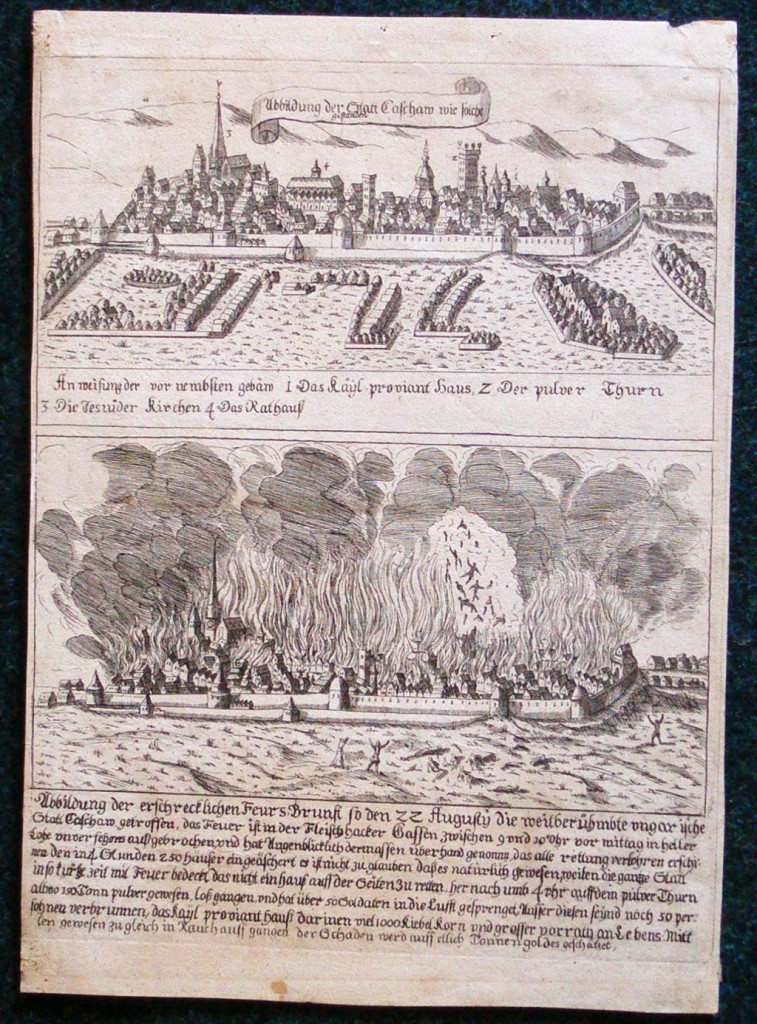 Abbildung der Statt Caschaw wie solche
gestanden
3
2
An weisung der vor nembsten gebäw 1 Das Käyl proviant Haus, 2 Der pulver Thurn
3 Die Jesuider Kirchen 4 Das Rathauß
Abbildung der erschrecklichen Feurs Brunst so den 22 Augusty die weitberühmbte ungarische
Statt Caschaw getroffen, das Feuer ist in der Fleischhacker Gassen zwischen 9 und 10 Uhr vor mittag in heller
Lohe unversehens außgebrochen und hat Augenblicklich dermassen überhand genomm, das alle rettung verlohren erschi-
nen den in 4 Stunden 250 häuser eingeäschert es ist nicht zu glauben daß es natürlich gewesen, weilen die gantze Statt
in so kurtz zeit mit Feuer bedeckt das nicht ein hauß auff der Seiten zu retten, her nach umb 4 uhr auff dem pulver Thurn
alwo 150 Tonn pulver gewesen, loß gangen und hat über 50 Soldaten in die Lufft gesprenget, Ausser diesen seind noch 50 per-
sohnen verbrunnen, das Käyl proviant hauß darinen viel 1000 Kübel Korn und grosser vorrath an Lebens Mitt
len gewesen zugleich in Rauch auff gangen der Schaden werd auff etlich Tonnen goldes geschätzet,